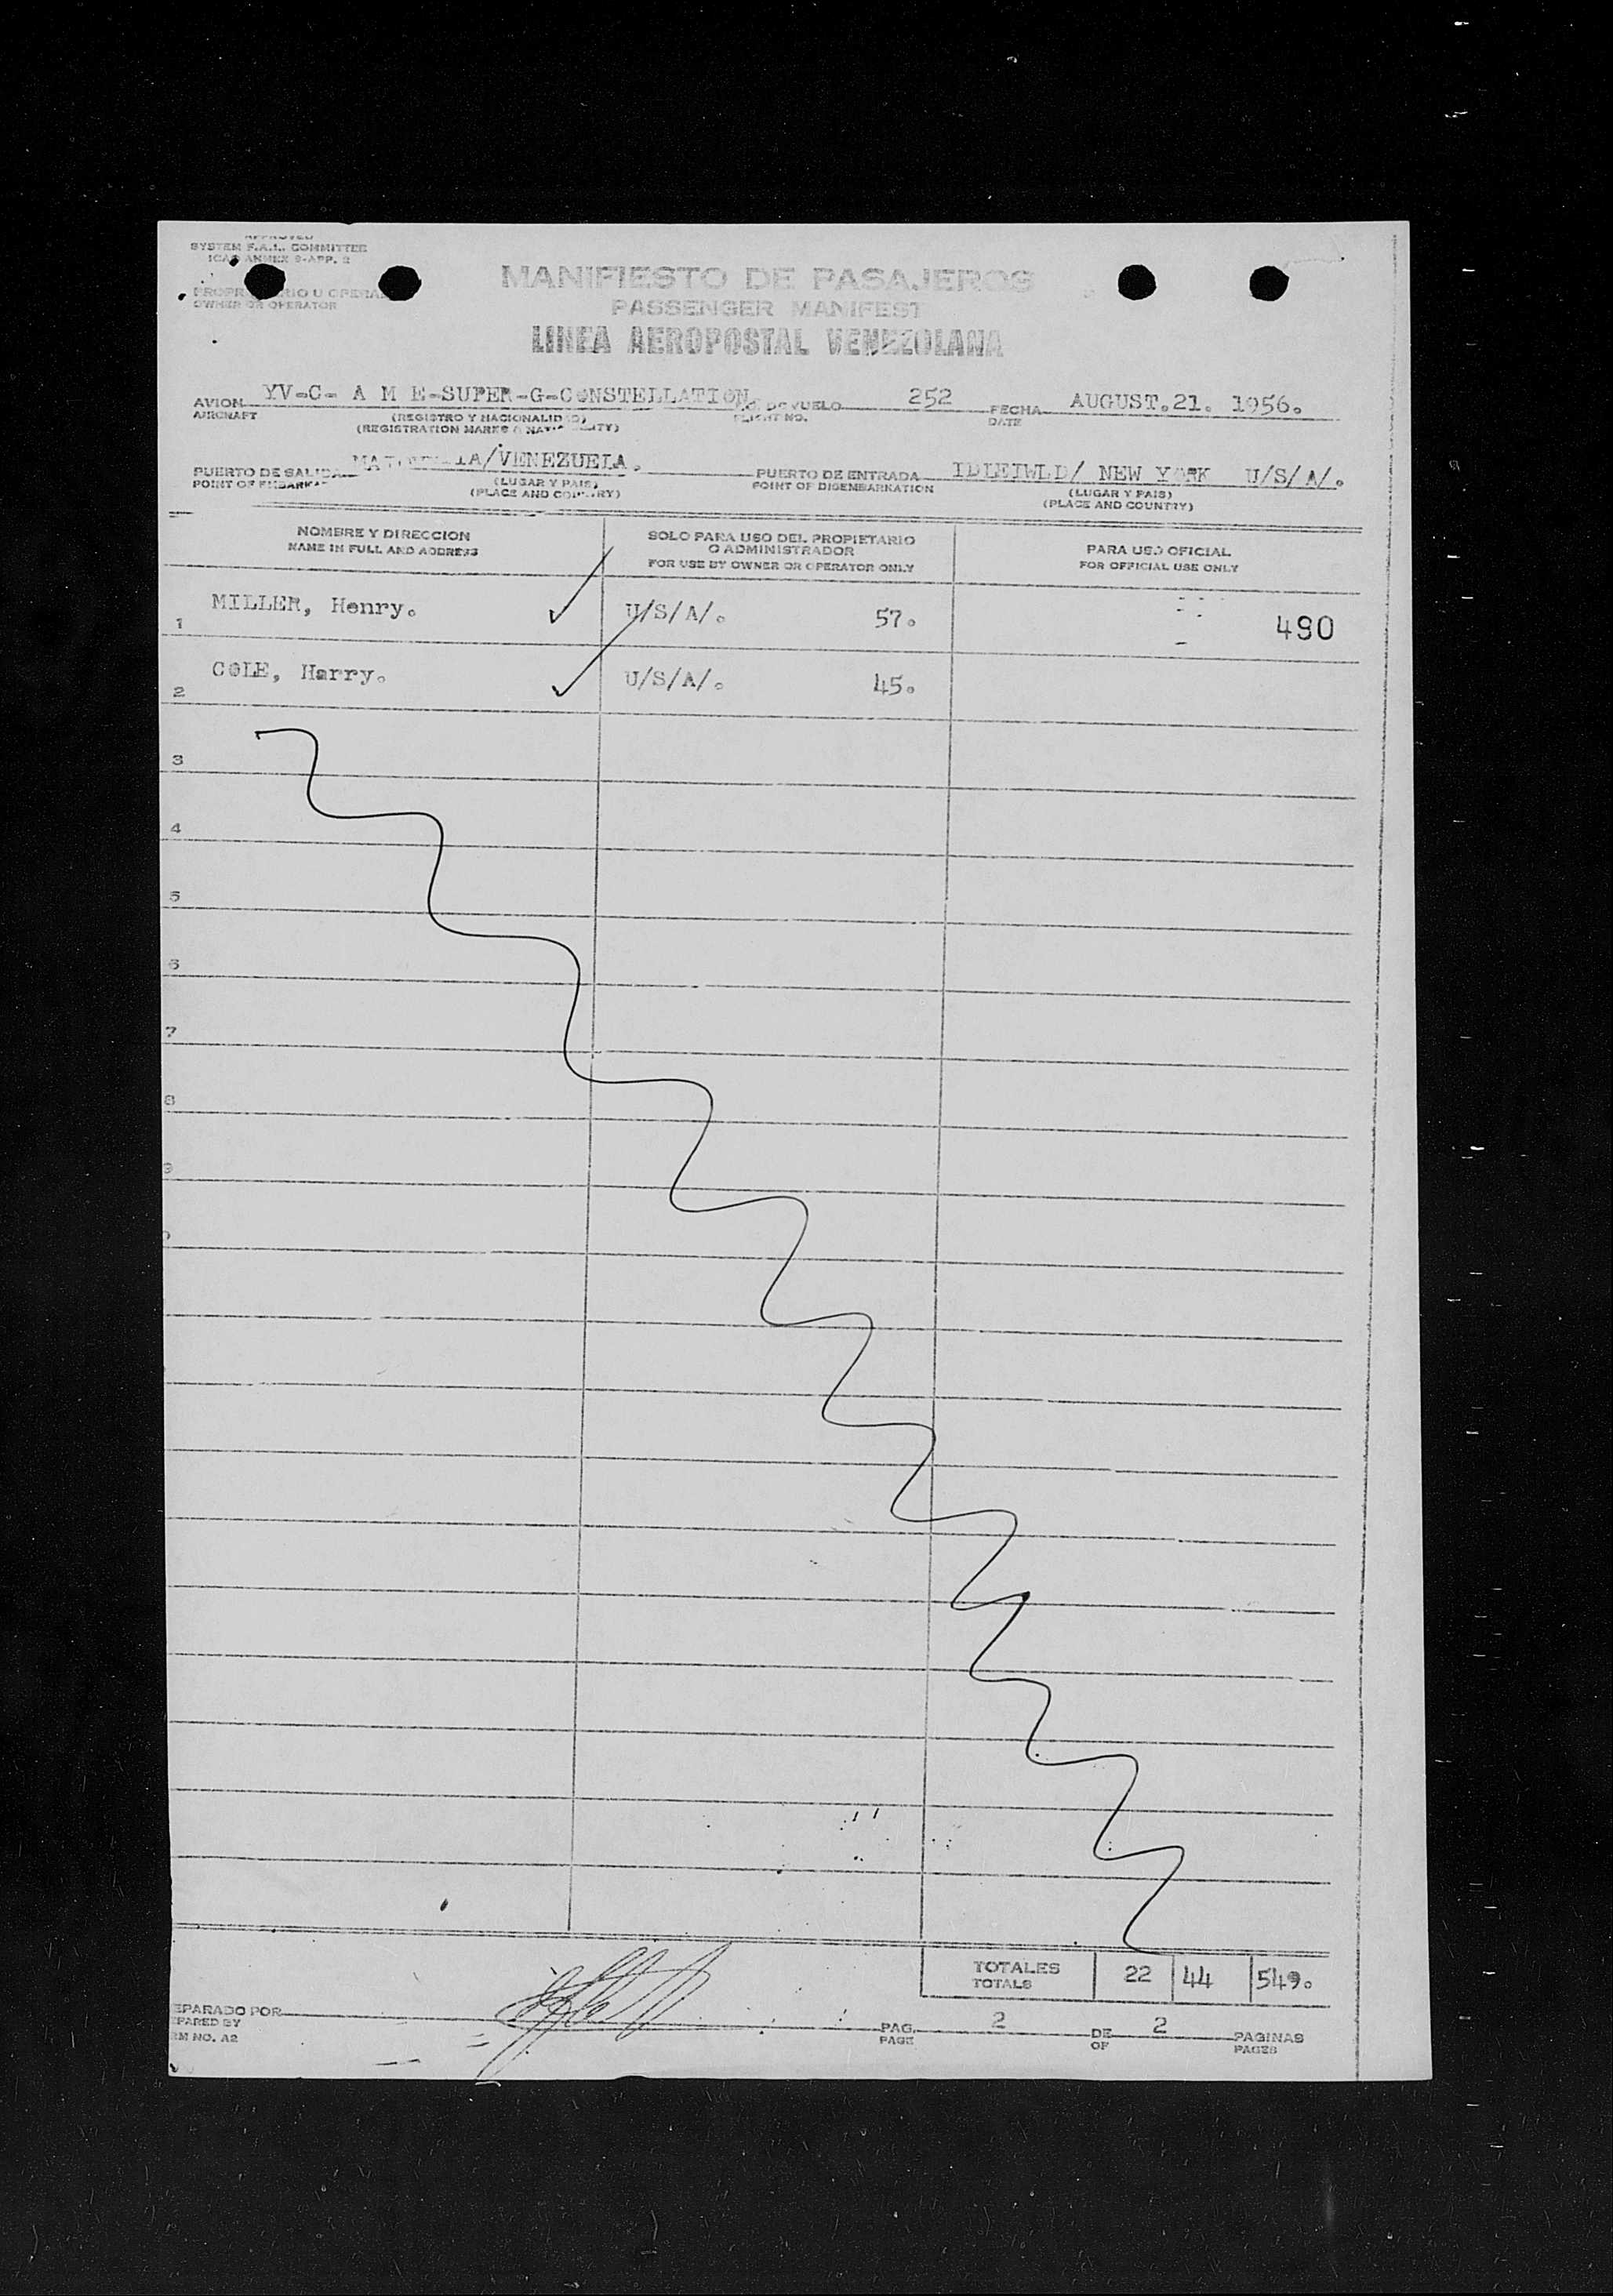 APPROVED
SYSTEM F.A.L. COMMITTEE
ICAO ANNEX 9-APP. 2
OWNER OR OPERATOR
MANIFIESTO DE PASAJEROS
PASSENGER MANIFEST
LINEA AEROPOSTAL VENEZOLANA
AVION YV-C- A M E-SUPER-G-CONSTELLATION DE VUELO 252 FECHA AUGUST.21. 1956.
AIRCRAFT (REGISTRO Y NACIONALIDAD) FLIGHT NO. DATE
(REGISTRATION MARKS & NATIONALITY)
PUERTO DE SALIDA /VENEZUELA. PUERTO DE ENTRADA IDLEIWLD/ NEW YORK U/S/A/.
POINT OF EMBARK (LUGAR Y PAIS) POINT OF DISEMBARKATION (LUGAR Y PAIS)
(PLACE AND COUNTRY) (PLACE AND COUNTRY)
NOMBRE Y DIRECCION SOLO PARA USO DEL PROPIETARIO PARA USO OFICIAL
NAME IN FULL AND ADDRESS O ADMINISTRADOR FOR OFFICIAL USE ONLY
FOR USE BY OWNER OR OPERATOR ONLY
1 MILLER, Henry. U/S/A/. 57. 490
2 COLE, Harry. U/S/A/. 45.
3
4
5
6
7
8
9
TOTALES 22 44 549.
TOTALS
EPARADO POR PAG. 2 DE 2 PAGINAS
EPARED BY PAGE OF PAGES
RM NO. A2